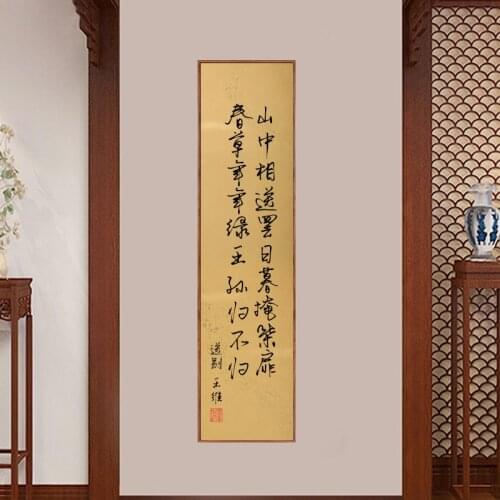 山中相送罢日暮掩柴扉
春草年年绿王孙归不归
送别 王维